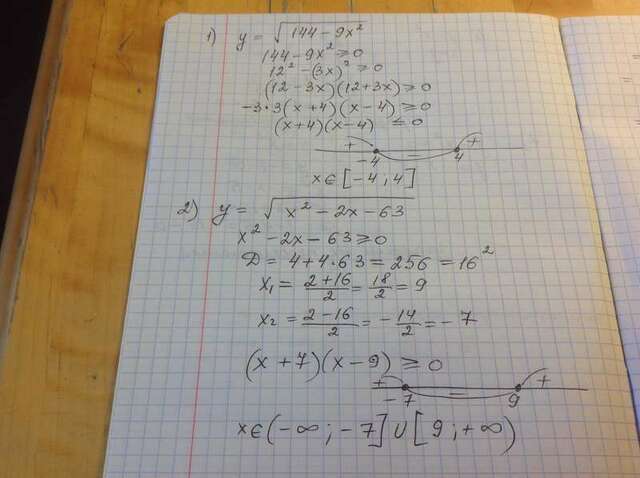 1) y = √(144 - 9x²)
144 - 9x² ≥ 0
12² - (3x)² ≥ 0
(12 - 3x)(12 + 3x) ≥ 0
-3·3(x+4)(x-4) ≥ 0
(x+4)(x-4) ≤ 0
+ - +
-4 4
x ∈ [-4; 4]
2) y = √(x² - 2x - 63)
x² - 2x - 63 ≥ 0
D = 4 + 4·63 = 256 = 16²
x₁ = (2+16)/2 = 18/2 = 9
x₂ = (2-16)/2 = -14/2 = -7
(x+7)(x-9) ≥ 0
+ - +
-7 9
x ∈ (-∞; -7] ∪ [9; +∞)